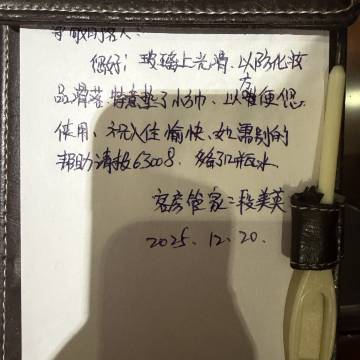 尊敬的客人：
您好！玻璃上光滑，以防化妆
品滑落，特意垫了小方巾，以方便您
使用、祝入住愉快，如需别的
帮助请拨63008. 多给了2瓶水
客房管家：段美英
2025.12.20.